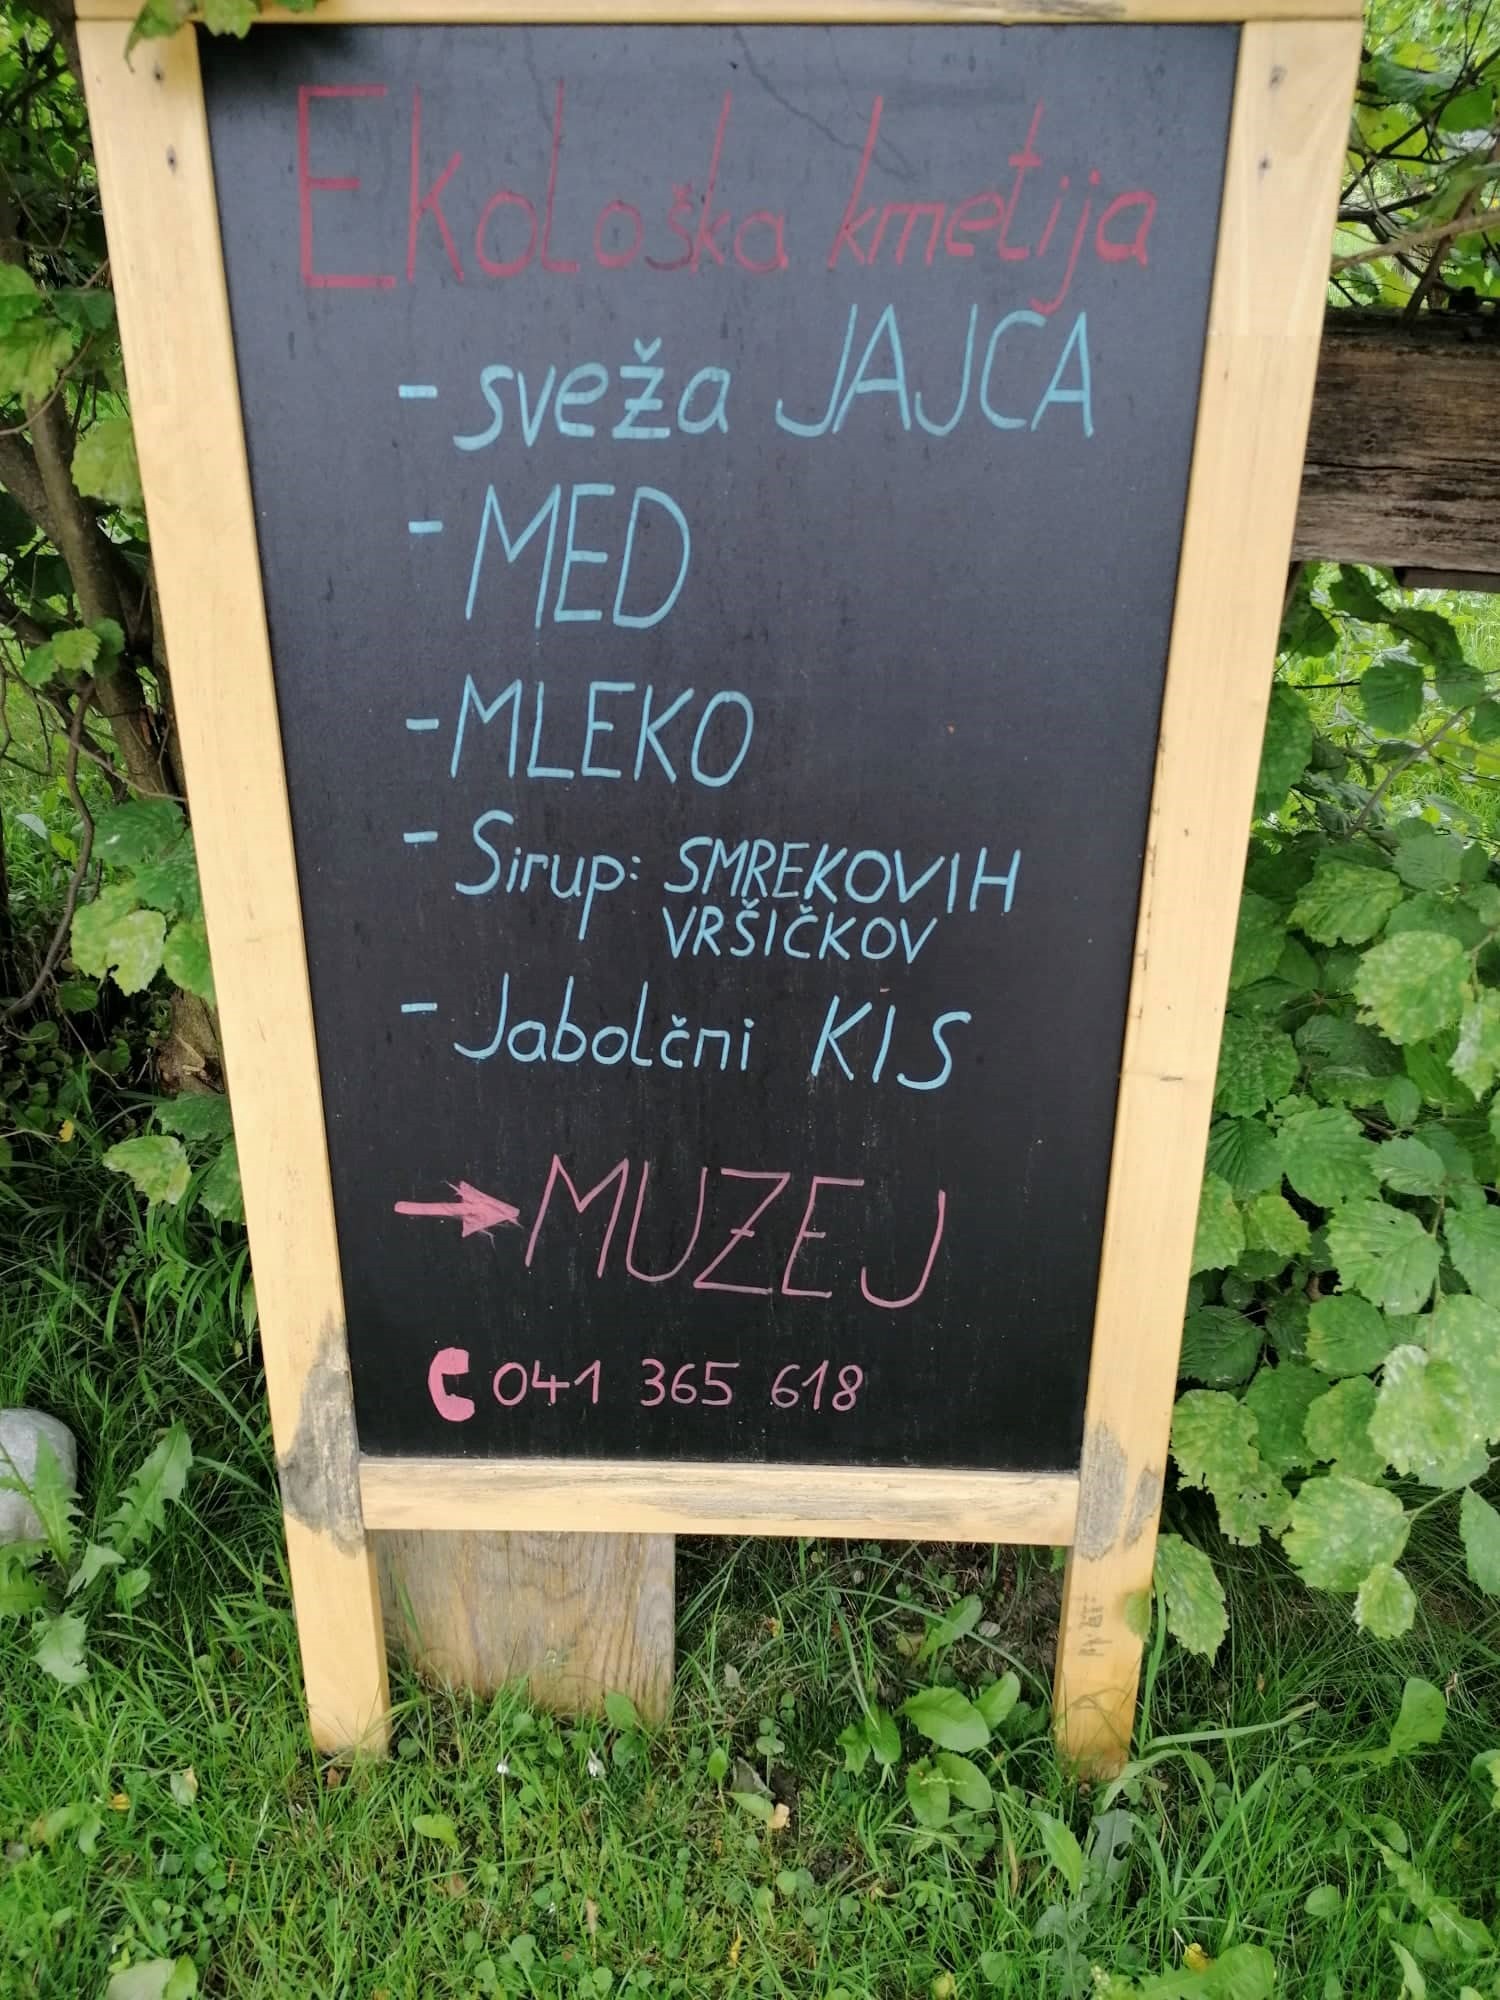 Ekološka kmetija
- sveža JAJCA
- MED
- MLEKO
- Sirup: SMREKOVIH
VRŠIČKOV
- Jabolčni KIS
→ MUZEJ
041 365 618